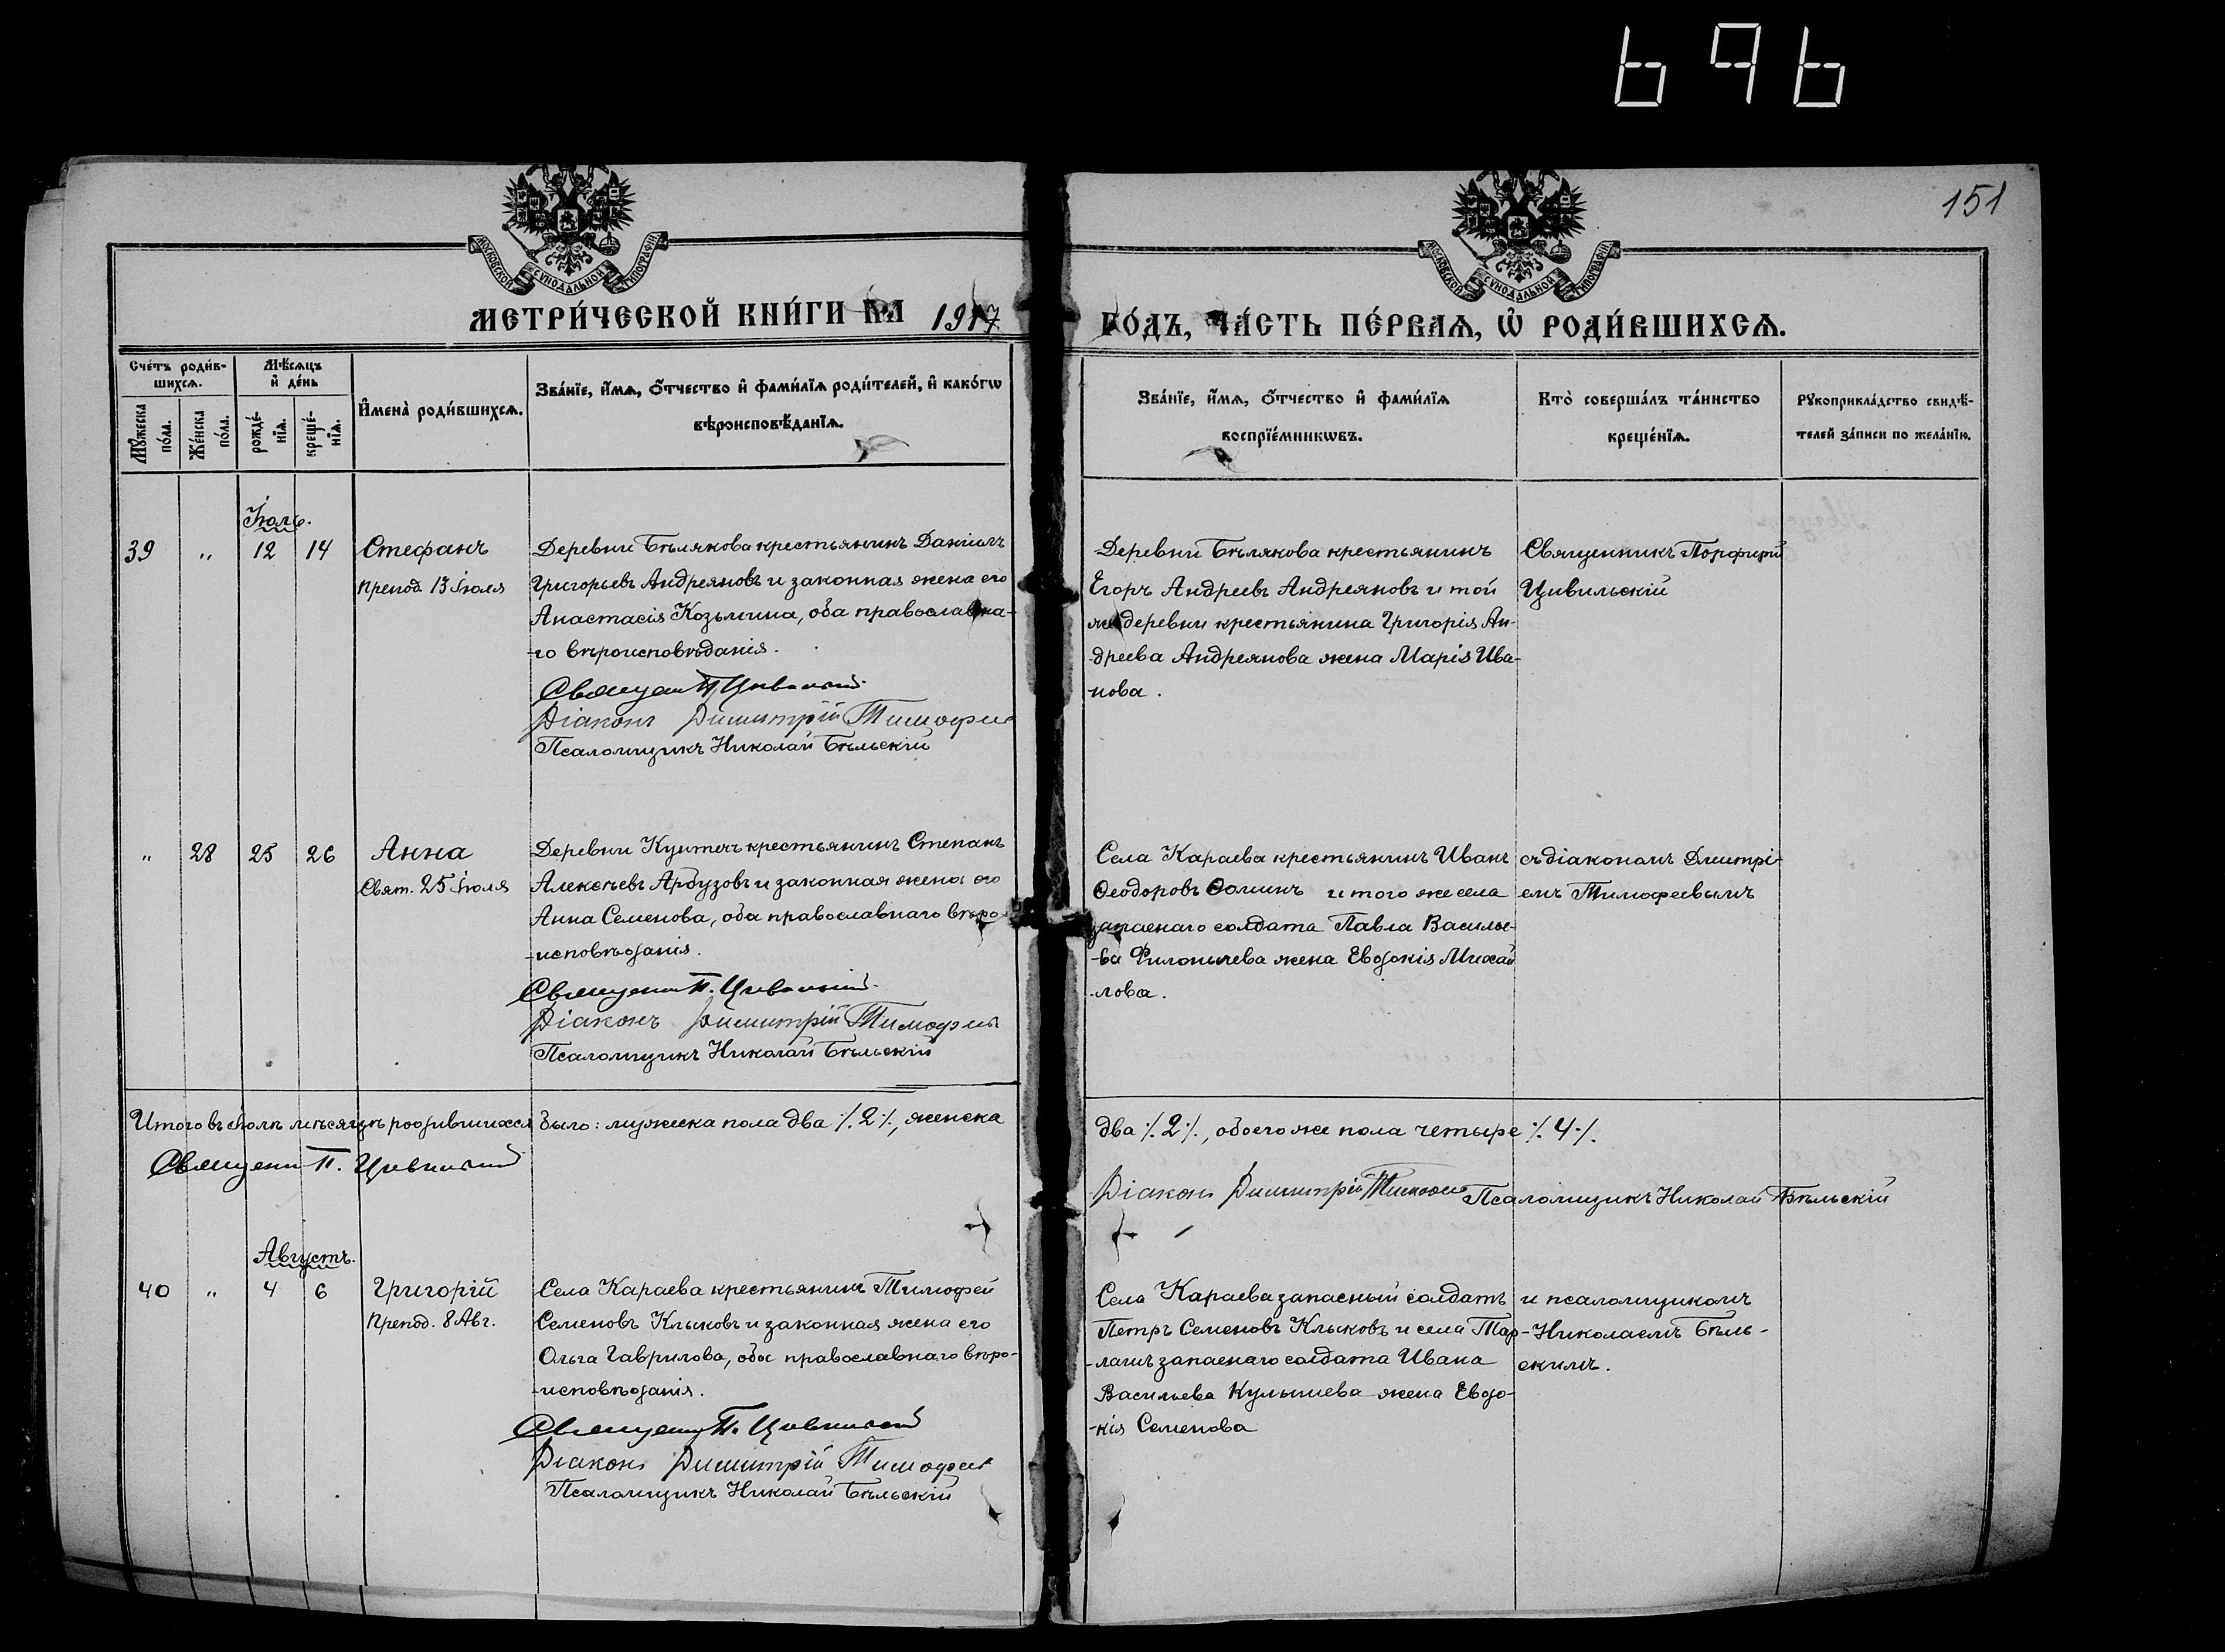 696
151
МОСКОВСКОЙ СѴНОДАЛЬНОЙ ТИПОГРАФІИ
МОСКОВСКОЙ СѴНОДАЛЬНОЙ ТИПОГРАФІИ
МЕТРИ́ЧЕСКОЙ КНИ́ГИ НА 1917
ГО́ДЪ, ЧА́СТЬ ПЕ́РВАѦ, Ѡ҆ РОДИ́ВШИХСѦ.
Сче́тъ роди́в-
шихсѧ.
Мѣ́сѧцъ
и҆ де́нь
Мꙋ́жеска
по́ла.
Же́нска
по́ла.
рожде́-
нїѧ.
креще́-
нїѧ.
И҆мена̀ роди́вшихсѧ.
Зва́нїе, и҆́мѧ, ѻ҆́тчество и҆ фами́лїѧ роди́телей, и҆ како́гѡ
вѣроисповѣ́данїѧ.
Зва́нїе, и҆́мѧ, ѻ҆́тчество и҆ фами́лїѧ
воспрїе́мникѡвъ.
Кто̀ соверша́лъ та́инство
креще́нїѧ.
Рꙋкоприкла́дство свидѣ́-
телей за́писи по жела́нїю.
Іюль.
39 „ 12 14 Стефанъ
Препод. 13 Іюля
Деревни Бѣлякова крестьянинъ Даніилъ
Григорьевъ Андреяновъ и законная жена его
Анастасія Козьмина, оба православна-
-го вѣроисповѣданія.
Священ. П. Цивильскій
Діаконъ Димитрій Тимофеев
Псаломщикъ Николай Бѣльскій
Деревни Бѣлякова крестьянинъ
Егоръ Андреевъ Андреяновъ и той
же деревни крестьянина Григорія Ан-
-дреева Андреянова жена Марія Ива-
-нова.
Священникъ Порфирій
Цивильскій
„ 28 25 26 Анна
Свят. 25 Іюля
Деревни Кушечъ крестьянинъ Степанъ
Алексѣевъ Арбузовъ и законная жена его
Анна Семенова, оба православнаго вѣро-
-исповѣданія.
Священ. П. Цивильскій
Діаконъ Димитрій Тимофеев
Псаломщикъ Николай Бѣльскій
Села Караева крестьянинъ Иванъ
Ѳеодоровъ Ѳоминъ и того же села
запаснаго солдата Павла Василье-
-ва Филонычева жена Евдокія Михай
-лова.
съ діакономъ Дмитрі-
емъ Тимофеевымъ
Итого въ Іюлѣ мѣсяцѣ родившихся было: мужеска пола два ·/.2·/., женска
два ·/.2·/., обоего же пола четыре ·/.4·/.
Священ. П. Цивильскій
Діаконъ Димитрій Тимофеев Псаломщикъ Николай Бѣльскій
Августъ.
40 „ 4 6 Григорій
Препод. 8 Авг.
Села Караева крестьянинъ Тимофей
Семеновъ Клыковъ и законная жена его
Ольга Гаврилова, оба православнаго вѣро-
-исповѣданія.
Священ. П. Цивильскій
Діаконъ Димитрій Тимофеев
Псаломщикъ Николай Бѣльскій
Села Караева запасный солдатъ
Петръ Семеновъ Клыковъ и села Тар-
-лашъ запаснаго солдата Ивана
Васильева Кулышева жена Евдо-
-кія Семенова
и псаломщикомъ
Николаемъ Бѣль-
скимъ.